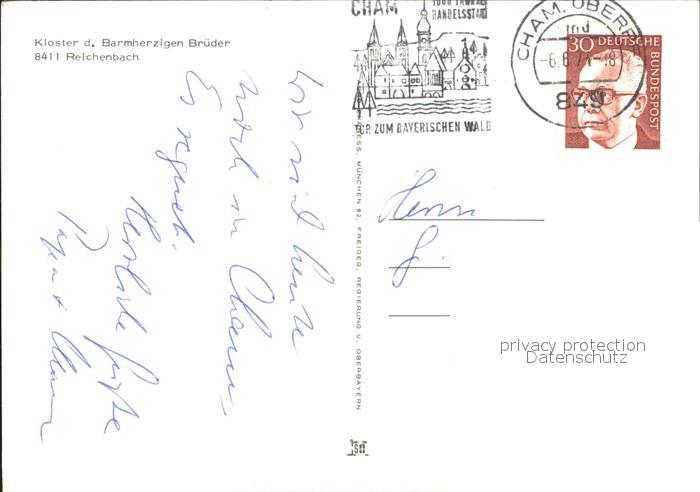 Kloster d. Barmherzigen Brüder
8411 Reichenbach
Wir sind heute
noch in Cham,
Es regnet.
Herzliche Grüße
Papa +
CHAM
1000 JAHRE
HANDELSSTADT
TOR ZUM BAYERISCHEN WALD
CHAM, OBERPF
-6.6.71-18
849
30 DEUTSCHE
BUNDESPOST
Herrn
G.
MÜNCHEN 82, FREIGEG. REGIERUNG V. OBERBAYERN
privacy protection
Datenschutz